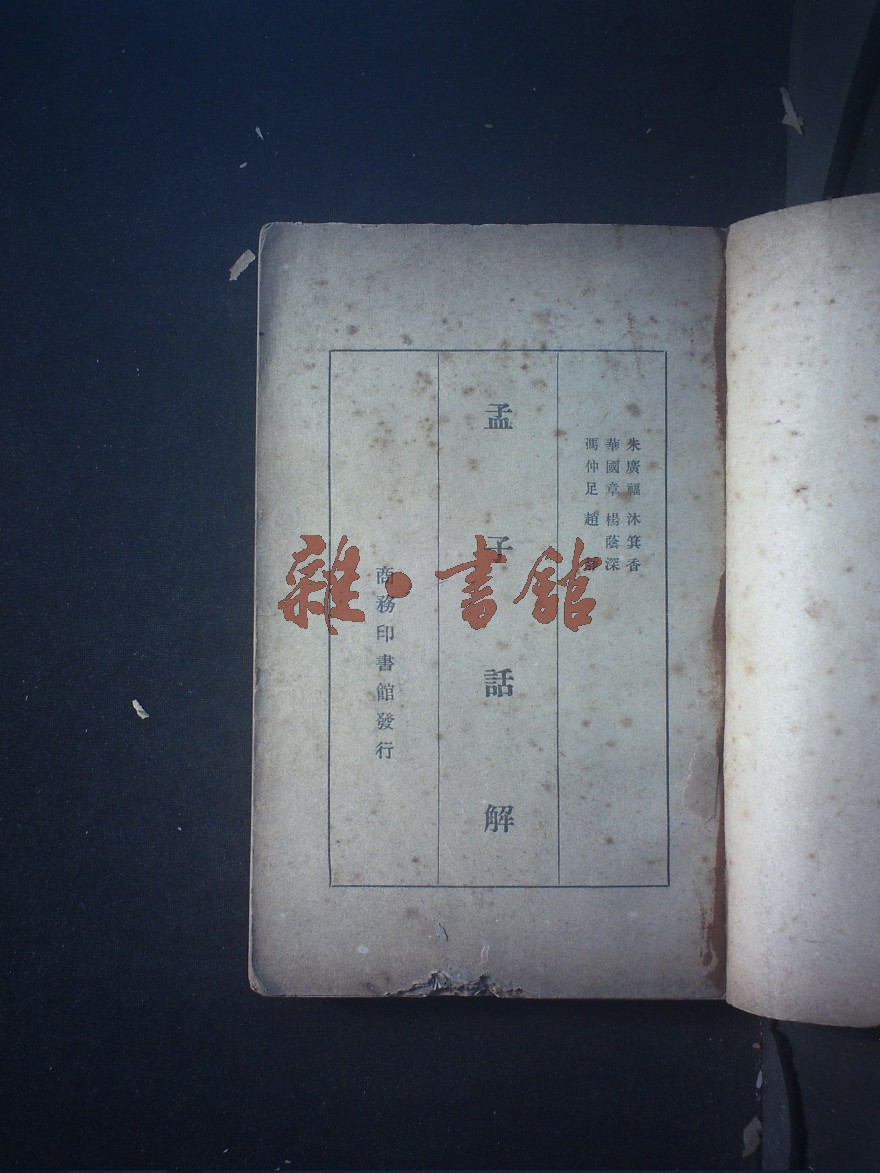 朱廣福 沐箕香
華國章 楊蔭深
馮仲足 趙
孟子話解
商務印書館發行
雜·書館